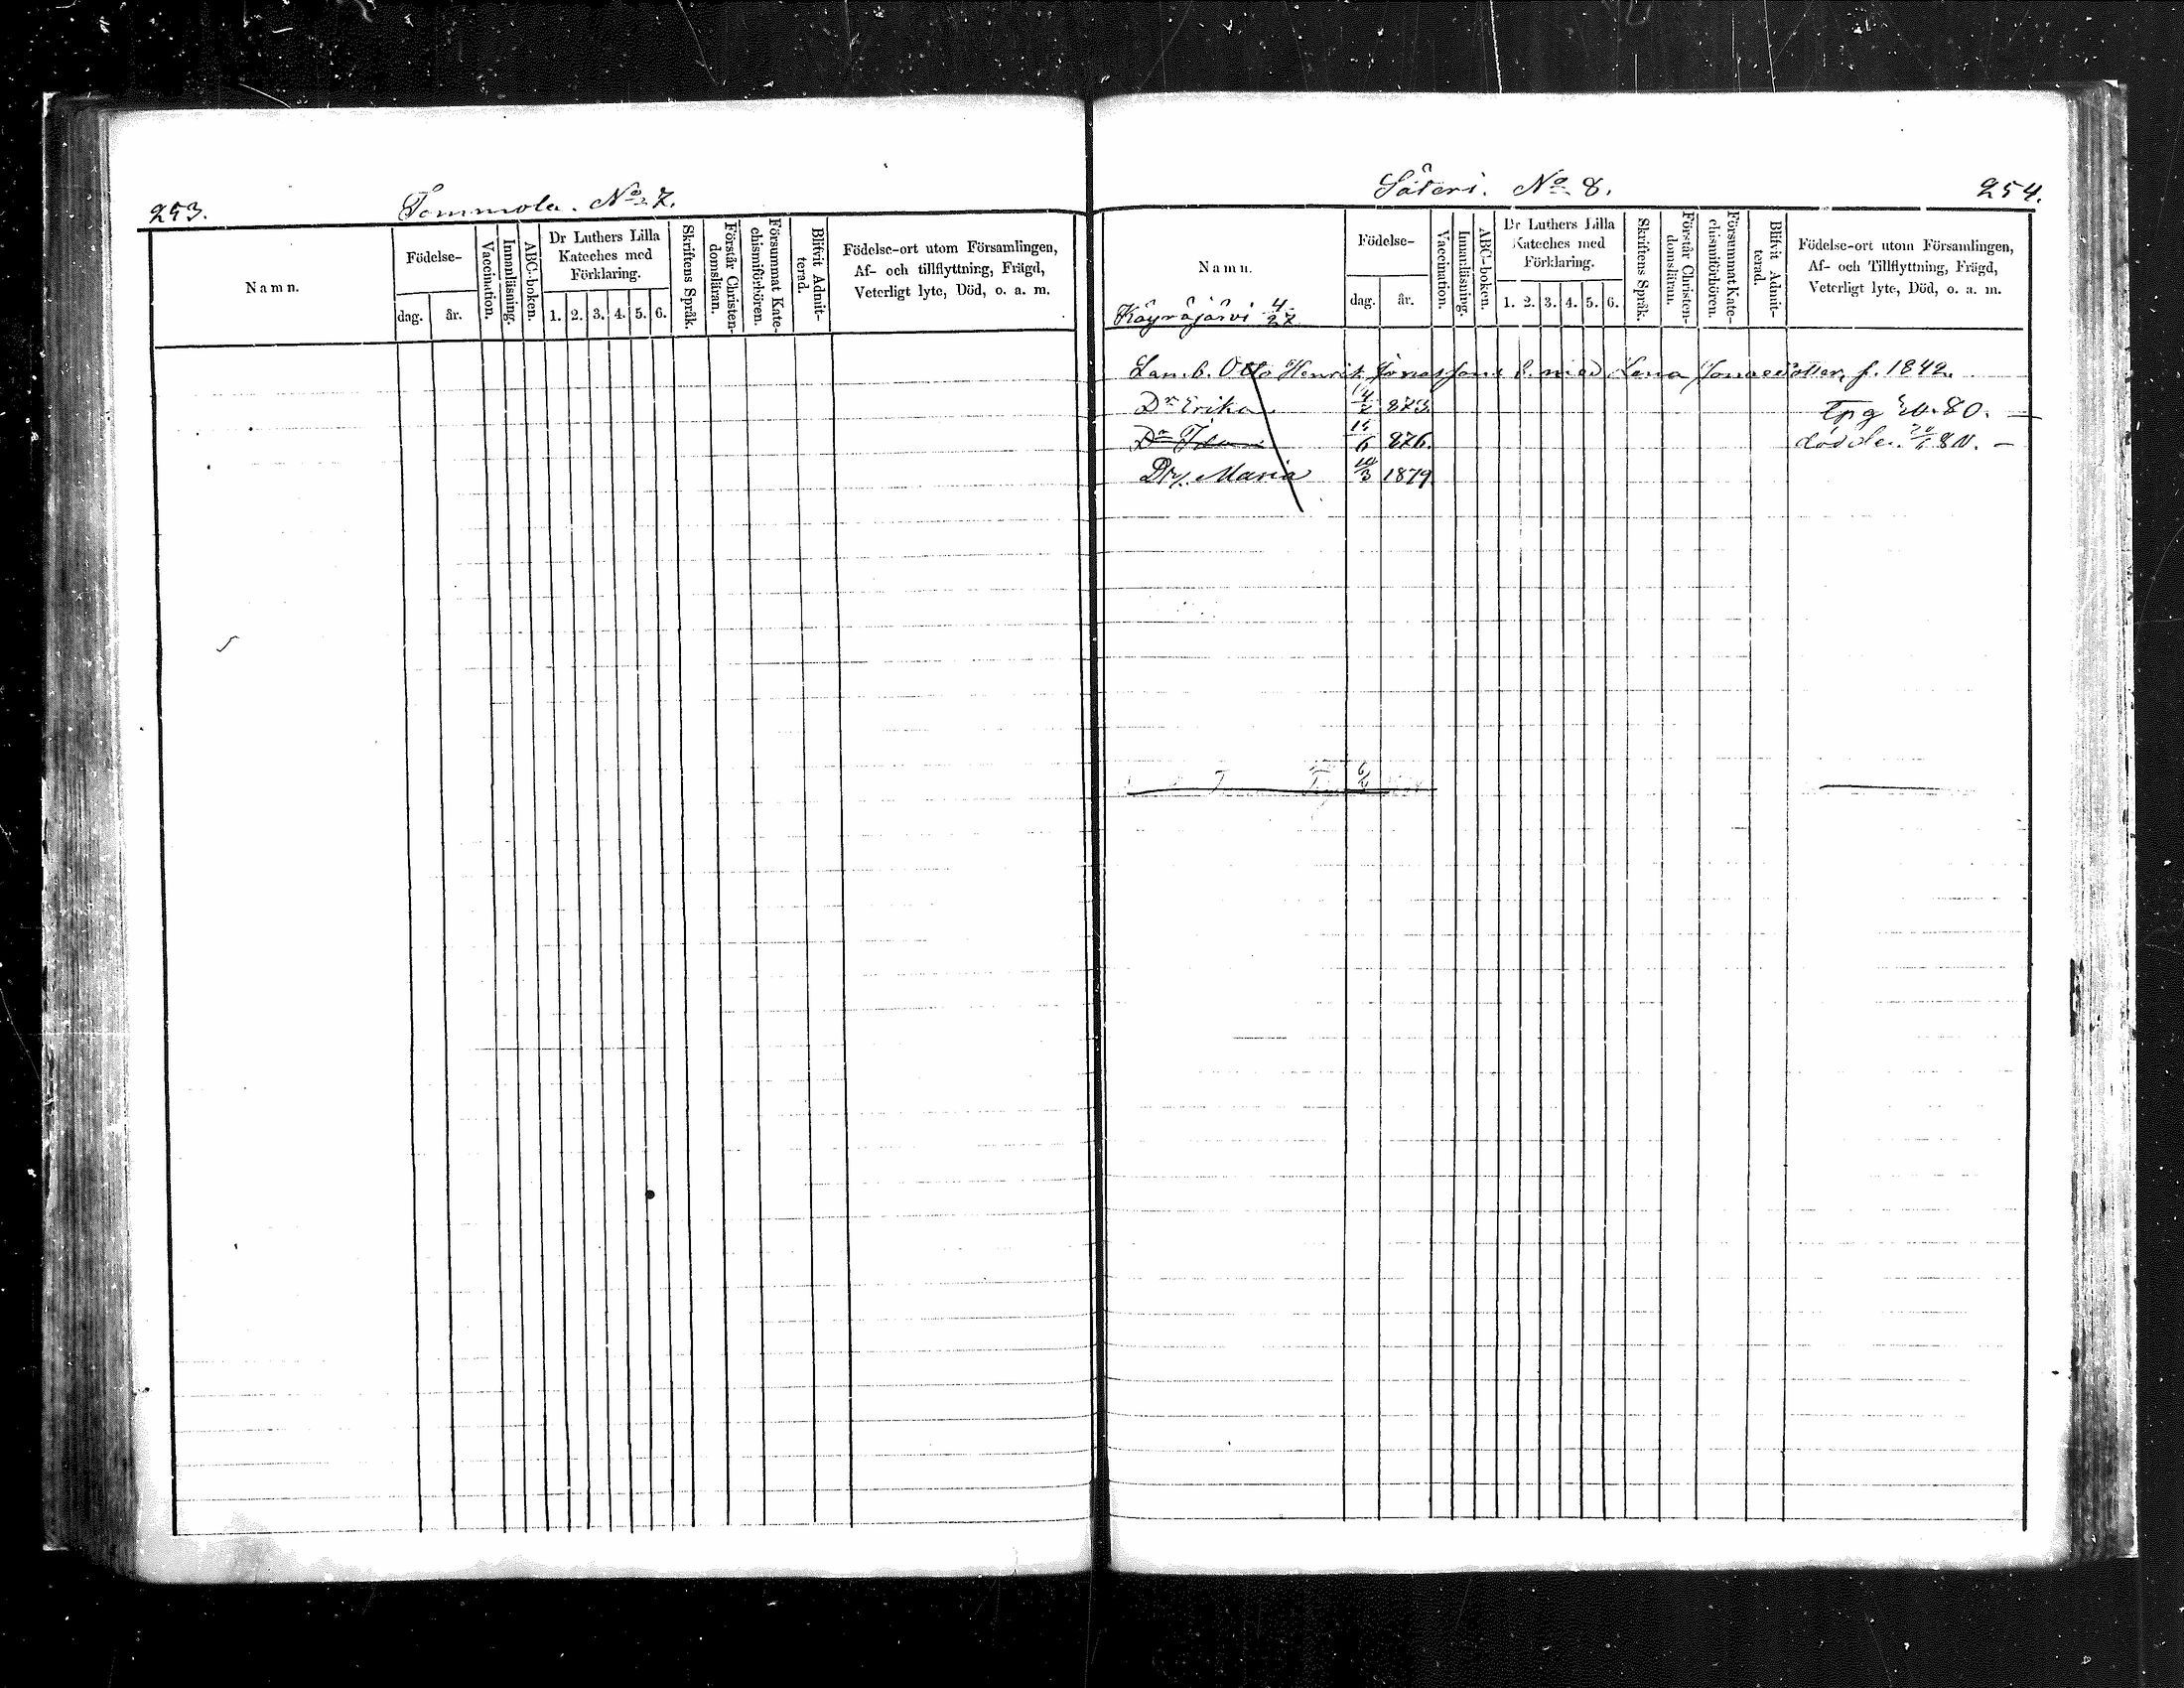 253.
Tommola. No 7.
Namn.
Födelse-
dag.
år.
Vaccination.
Innanläsning.
ABC-boken.
Dr Luthers Lilla
Kateches med
Förklaring.
1. 2. 3. 4. 5. 6.
Skriftens Språk.
Förstår Christen-
domsläran.
Försummat Kate-
chismiförhören.
Blifvit Admit-
terad.
Födelse-ort utom Församlingen,
Af- och tillflyttning, Frägd,
Veterligt lyte, Död, o. a. m.
Säteri. No 8.
254.
Namn.
Födelse-
dag.
år.
Vaccination.
Innanläsning.
ABC-boken.
Dr Luthers Lilla
Kateches med
Förklaring.
1. 2. 3. 4. 5. 6.
Skriftens Språk.
Förstår Christen-
domsläran.
Försummat Kate-
chismiförhören.
Blifvit Admit-
terad.
Födelse-ort utom Församlingen,
Af- och Tillflyttning, Frägd,
Veterligt lyte, Död, o. a. m.
Käyräjärvi 4/27
Otto Henrik Jonassons b. med Lena Jonaedotter, f. 1842.
Dr Erika 873. 80.
Dr 6 876.
Dr. Maria 10/3 1879